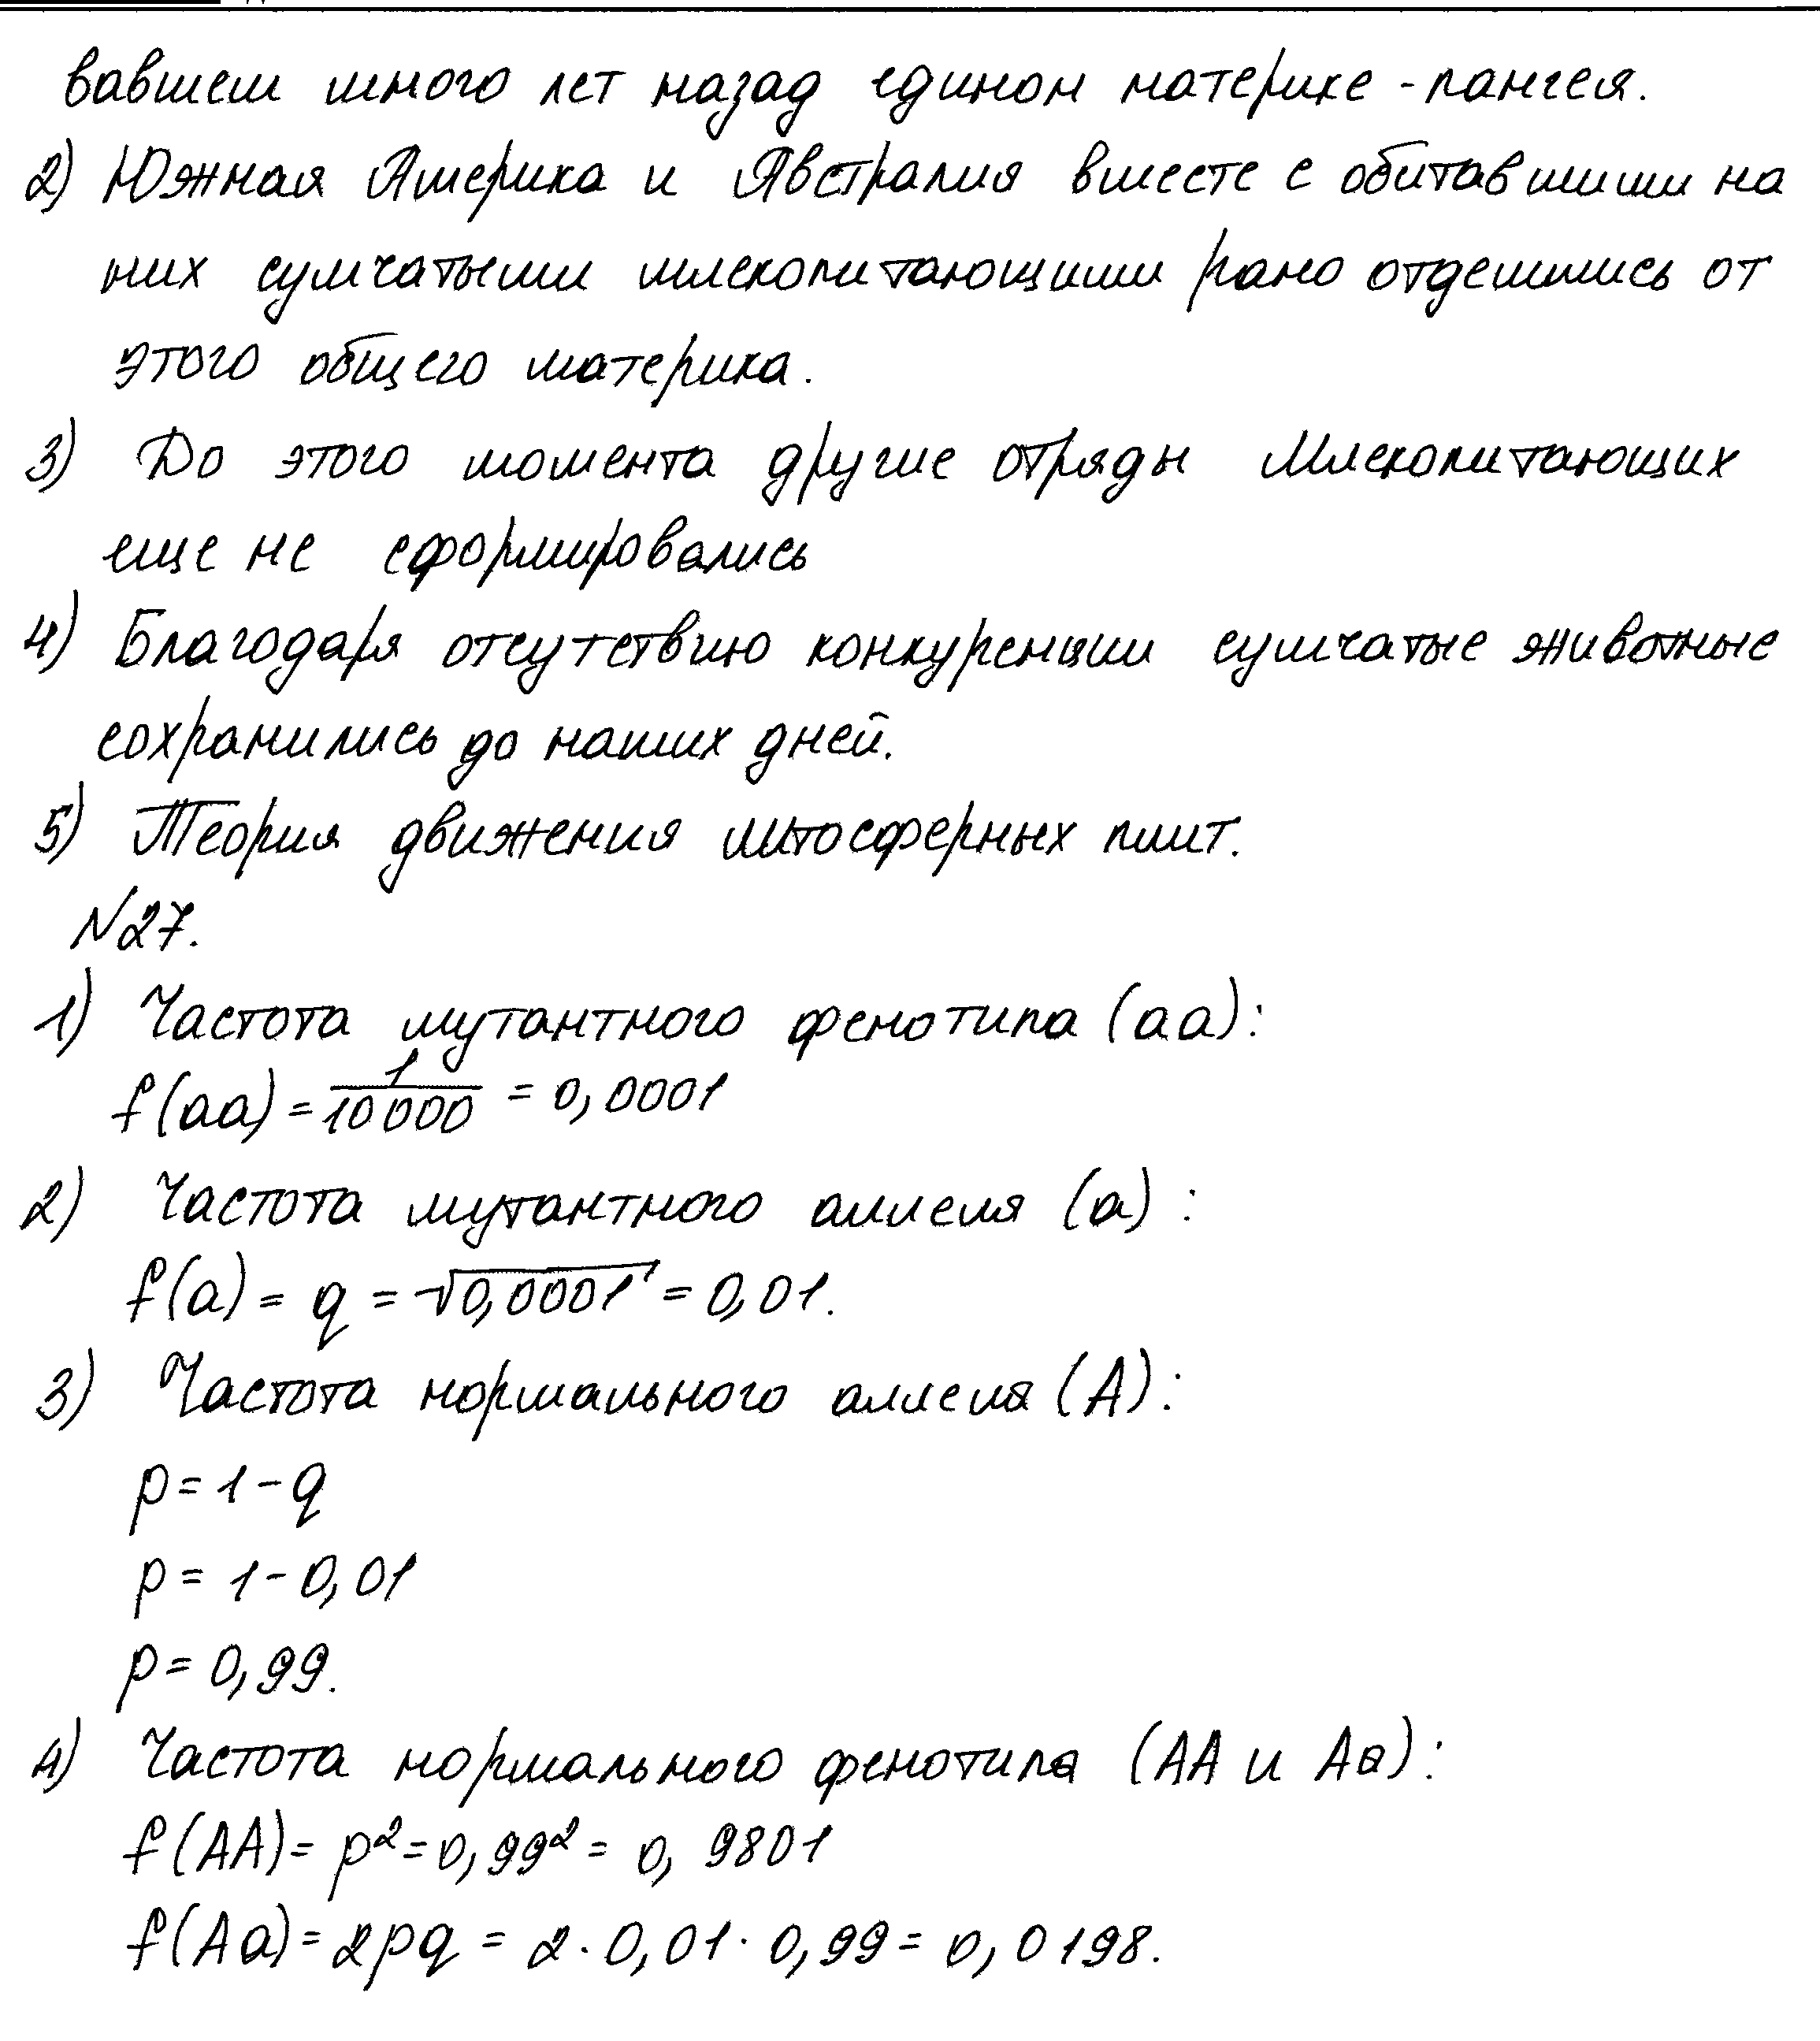 вавшем много лет назад едином материке - пангея.
2) Южная Америка и Австралия вместе с обитавшими на
них сумчатыми млекопитающими рано отделились от
этого общего материка.
3) До этого момента другие отряды Млекопитающих
еще не сформировались
4) Благодаря отсутствию конкуренции сумчатые животные
сохранились до наших дней.
5) Теория движения литосферных плит.
№27.
1) Частота мутантного фенотипа (аа):
f(aa) = 1/10000 = 0,0001
2) Частота мутантного аллеля (а) :
f(a) = q = √0,0001 = 0,01.
3) Частота нормального аллеля (А):
p = 1 - q
p = 1 - 0,01
p = 0,99.
4) Частота нормального фенотипа (АА и Аа):
f(AA) = p² = 0,99² = 0,9801
f(Aa) = 2pq = 2 · 0,01 · 0,99 = 0,0198.